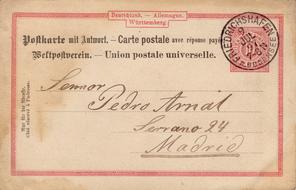 Deutschland. — Allemagne.
Württemberg.
Postkarte mit Antwort. — Carte postale avec réponse payée
Weltpostverein. — Union postale universelle.
FRIEDRICHSHAFEN
JUL
Sennor
Pedro Arnát
Serrano 24
Madrid
Nur für die Adresse.
Côté réservé à l'adresse.